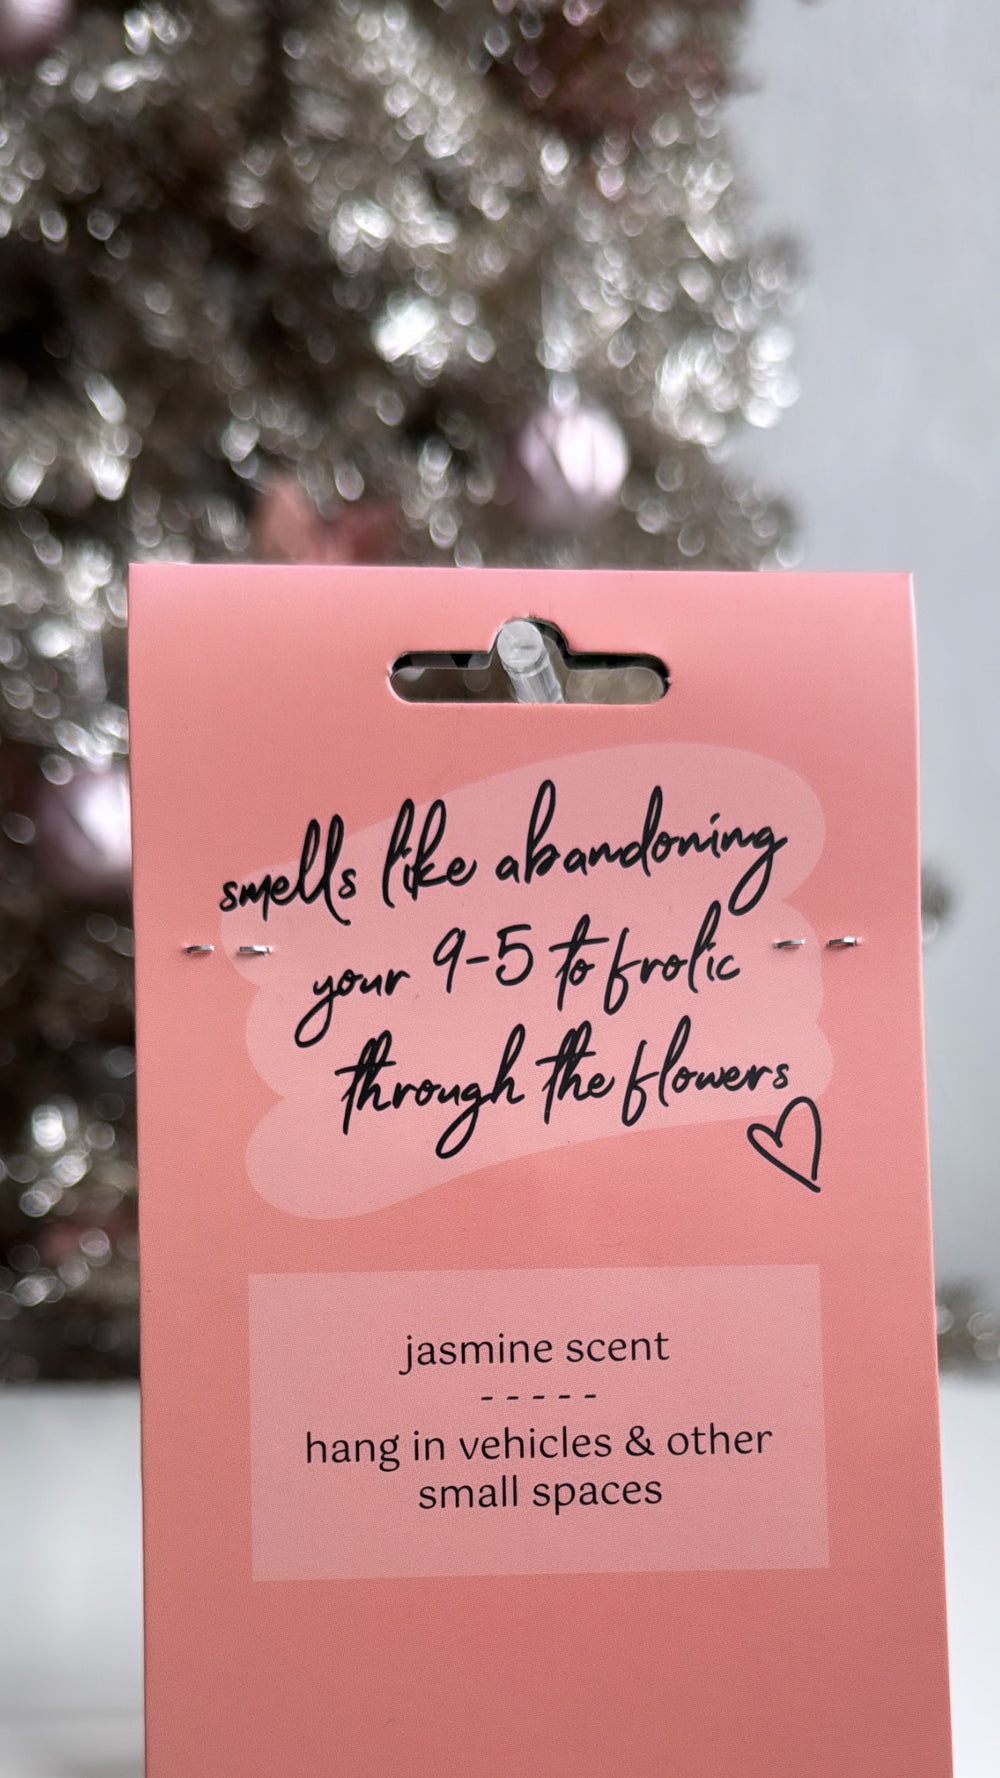 smells like abandoning
your 9-5 to frolic
through the flowers
jasmine scent
- - - - -
hang in vehicles & other
small spaces